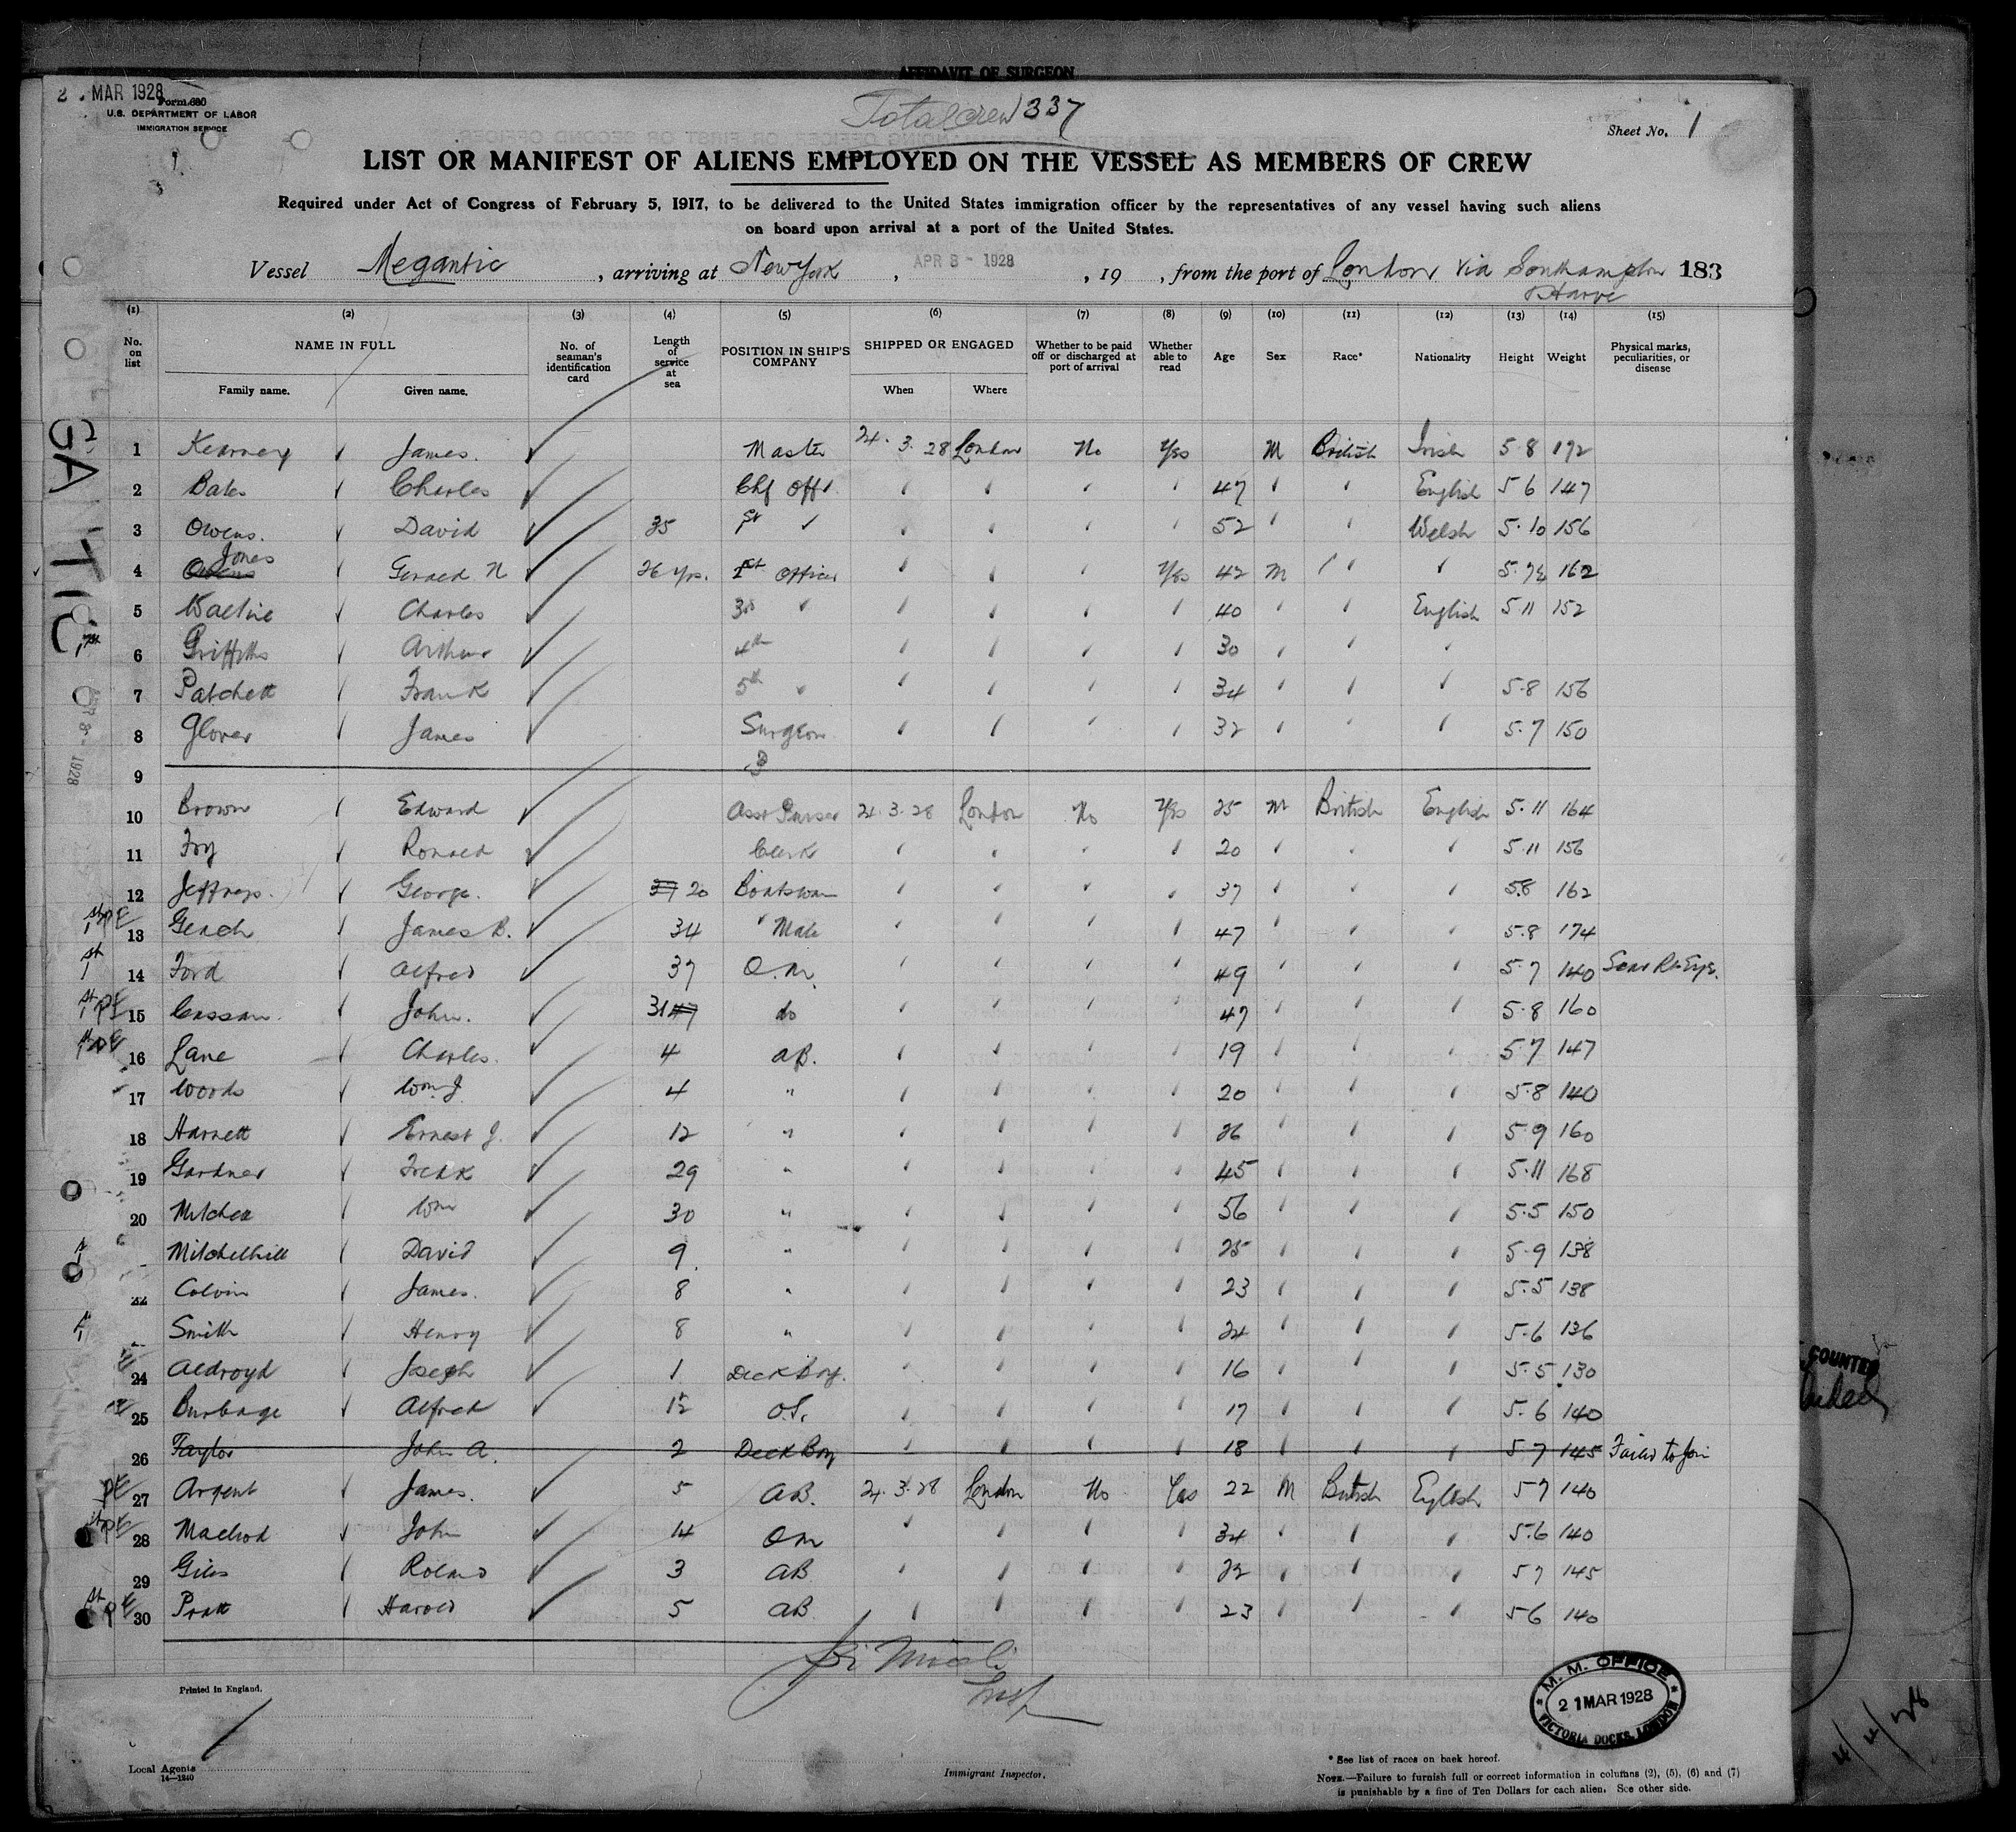 AFFIDAVIT OF SURGEON
2 . MAR 1928
Form 680
U.S. DEPARTMENT OF LABOR
IMMIGRATION SERVICE
Total crew 337
Sheet No. 1
LIST OR MANIFEST OF ALIENS EMPLOYED ON THE VESSEL AS MEMBERS OF CREW
Required under Act of Congress of February 5, 1917, to be delivered to the United States immigration officer by the representatives of any vessel having such aliens
on board upon arrival at a port of the United States.
Vessel Megantic, arriving at New York, APR 3 - 1928, 19 , from the port of London via Southampton 183
& Havre
(1) (2) (3) (4) (5) (6) (7) (8) (9) (10) (11) (12) (13) (14) (15)
No. on list NAME IN FULL Family name. Given name. No. of seaman's identification card Length of service at sea POSITION IN SHIP'S COMPANY SHIPPED OR ENGAGED When Where Whether to be paid off or discharged at port of arrival Whether able to read Age Sex Race* Nationality Height Weight Physical marks, peculiarities, or disease
1 Kearney James. Master 24. 3. 28 London No Yes M British Irish 5 8 172
2 Bates Charles Chf Offr. 47 English 5 6 147
3 Owens. David 35 1st 52 Welsh 5. 10 156
4 Owens Jones Gerald N 26 yrs. 1st Officer Yes 42 M 5. 7½ 162
5 Charles 3rd 40 English 5 11 152
6 Griffiths Arthur 4th 30
7 Patchett Frank 5th 34 5.8 156
8 Glover James Surgeon 32 5. 7 150
9
10 Brown Edward Asst Purser 24. 3. 28 London No Yes 25 M British English 5. 11 164
11 Fry Ronald Clerk 20 5 11 156
12 Jeffreys. George. 37 20 Boatswan 37 5.8 162
13 Geach James B. 34 " Mate 47 5.8 174
14 Ford Alfred 37 Q.M. 49 5.7 140 Scar Rt Eye.
15 Cassan. John. 31 47 do 47 5.8 160
16 Lane Charles. 4 AB. 19 5.7 147
17 Woods Wm. J. 4 " 20 5.8 140
18 Harnett Ernest J. 12 " 26 5 9 160
19 Gardner Fredk 29 " 45 5.11 168
20 Mitchell Wm 30 " 56 5.5 150
Mitchelhill David 9 " 25 5.9 138
22 Colvin James. 8 " 23 5.5 138
Smith Henry 8 " 24 5.6 136
24 Aldroyd Joseph 1 Deck Boy. 16 5.5 130
25 Burbage Alfred 1½ O.S. 17 5. 6 140
26 Taylor John A. 2 Deck Boy 18 5 7 145 Failed to Join
27 Argent James. 5 AB. 24. 3. 28 London No Yes 22 M British English 5 7 140
28 Macleod John 14 QM 34 5.6 140
29 Giles Roland 3 AB 22 5 7 145
30 Pratt Harold 5 AB 23 5 6 140
Insp
Printed in England.
M. M. OFFICE
21 MAR 1928
VICTORIA DOCKS, LONDON
Local Agents
14—1240
Immigrant Inspector.
* See list of races on back hereof.
NOTE.—Failure to furnish full or correct information in columns (2), (5), (6) and (7)
is punishable by a fine of Ten Dollars for each alien. See other side.
COUNTED
4/4/28